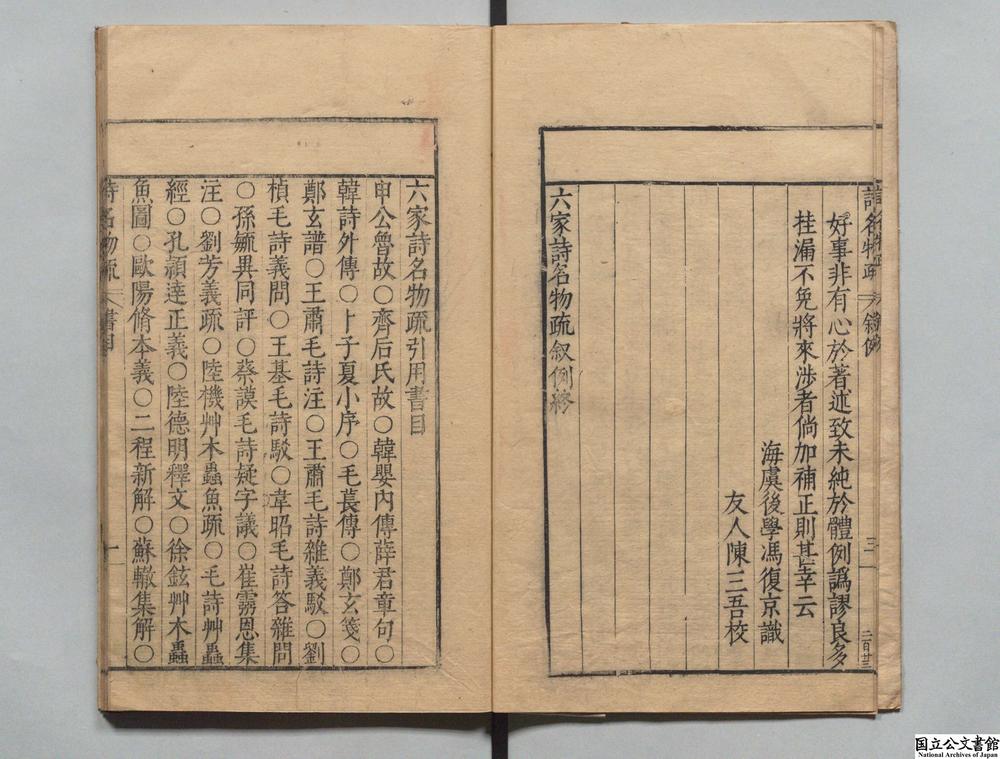 詩名物疏 叙例 三 二百廿三
好事非有心於著述致未純於體例譌謬良多
挂漏不免將來涉者倘加補正則甚幸云
海虞後學馮復京識
友人陳三吾校
六家詩名物疏叙例終
六家詩名物疏引用書目
申公魯故〇齊后氏故〇韓嬰內傳薛君章句〇
韓詩外傳〇卜子夏小序〇毛萇傳〇鄭玄箋〇
鄭玄譜〇王肅毛詩注〇王肅毛詩雜義駁〇劉
楨毛詩義問〇王基毛詩駁〇韋昭毛詩答雜問
〇孫毓異同評〇蔡謨毛詩疑字議〇崔靈恩集
注〇劉芳義疏〇陸機艸木蟲魚疏〇毛詩艸蟲
經〇孔頴達正義〇陸德明釋文〇徐鉉艸木蟲
魚圖〇歐陽脩本義〇二程新解〇蘇轍集解〇
詩名物疏 書目 一
国立公文書館
National Archives of Japan